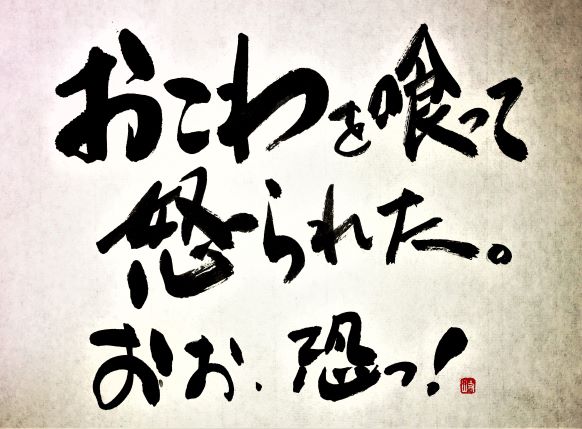 おこわを喰って
怒られた。
おお、恐っ!